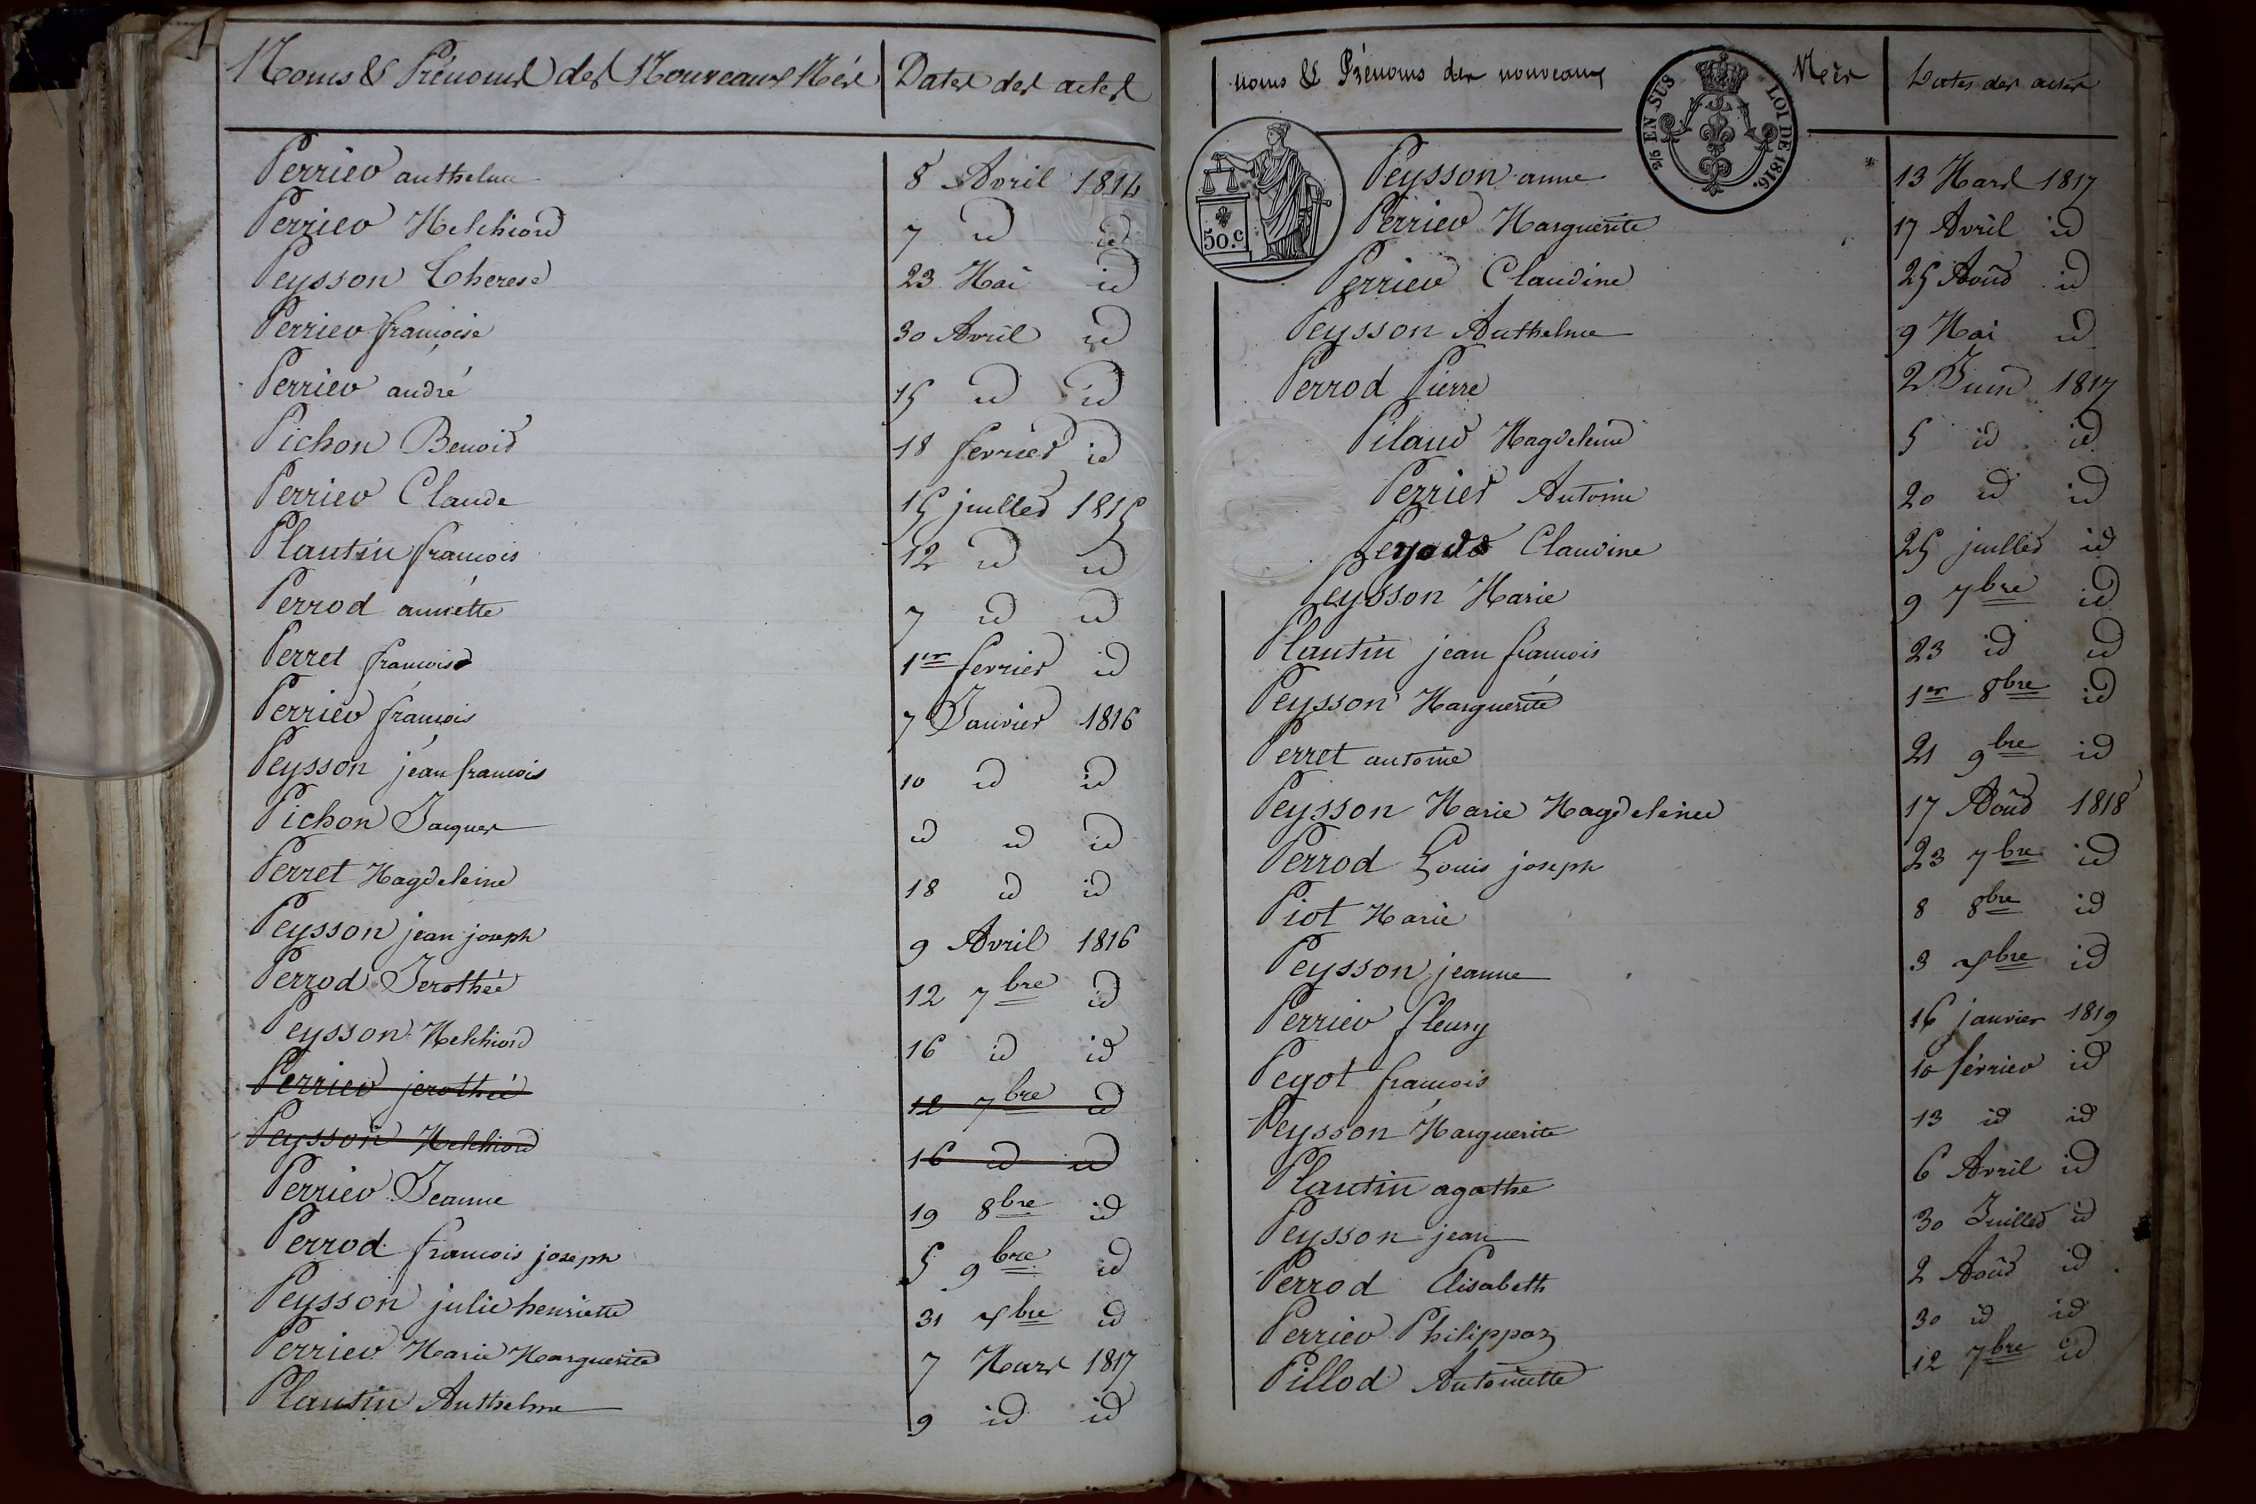 Noms & Prénoms des Nouveaux Nés Dates des actes
Perrier anthelme 8 Avril 1814
Perrier Melchiord 7 id id
Peysson Therese 23 Mai id
Perrier françoise 30 Avril id
Perrier andré 15 id id
Pichon Benoid 18 fevrier id
Perrier Claude 15 juilled 1815
Plantin francois 12 id id
Perrod annette 7 id id
Perret francoise 1er fevrier id
Perrier françois 7 Janvier 1816
Peysson jean francois 10 id id
Pichon Jacques id id id
Perret Magdeleine 18 id id
Peysson jean joseph 9 Avril 1816
Perrod Jerothée 12 7bre id
Peysson Melchiord 16 id id
Perrier jerothée 12 7bre id
Peysson Melchiord 16 id id
Perrier Jeanne 19 8bre id
Perrod francois joseph 5 9bre id
Peysson julie henriette 31 xbre id
Perrier Marie Marguerite 7 Mars 1817
Plantin Anthelme 9 id id
noms & Prénoms des nouveaux Nés Dates des actes
2/5 EN SUS LOI DE 1816.
50.c
Peysson anne 13 Mars 1817
Perrier Marguerite 17 Avril id
Perrier Claudine 25 Aoûd id
Peysson Anthelme 9 Mai id
Perrod Pierre 2 Juin 1817
Pilaud Magdeleine 5 id id
Perrier Antoine 20 id id
Claudine 25 juilled id
Peysson Marie 9 7bre id
Plantin jean francois 23 id id
Peysson Marguerite 1er 8bre id
Perret antoine 21 9bre id
Peysson Marie Magdeleine 17 Aoûd 1818
Perrod Louis joseph 23 7bre id
Piot Marie 8 8bre id
Peysson jeanne 3 xbre id
Perrier fleury 16 janvier 1819
Pegot françois 10 février id
Peysson Marguerite 13 id id
Plantin agathe 6 Avril id
Peysson jean 30 Juilled id
Perrod Elisabeth 2 Aoûd id
Perrier Philippaz 30 id id
Pillod Antoinette 12 7bre id